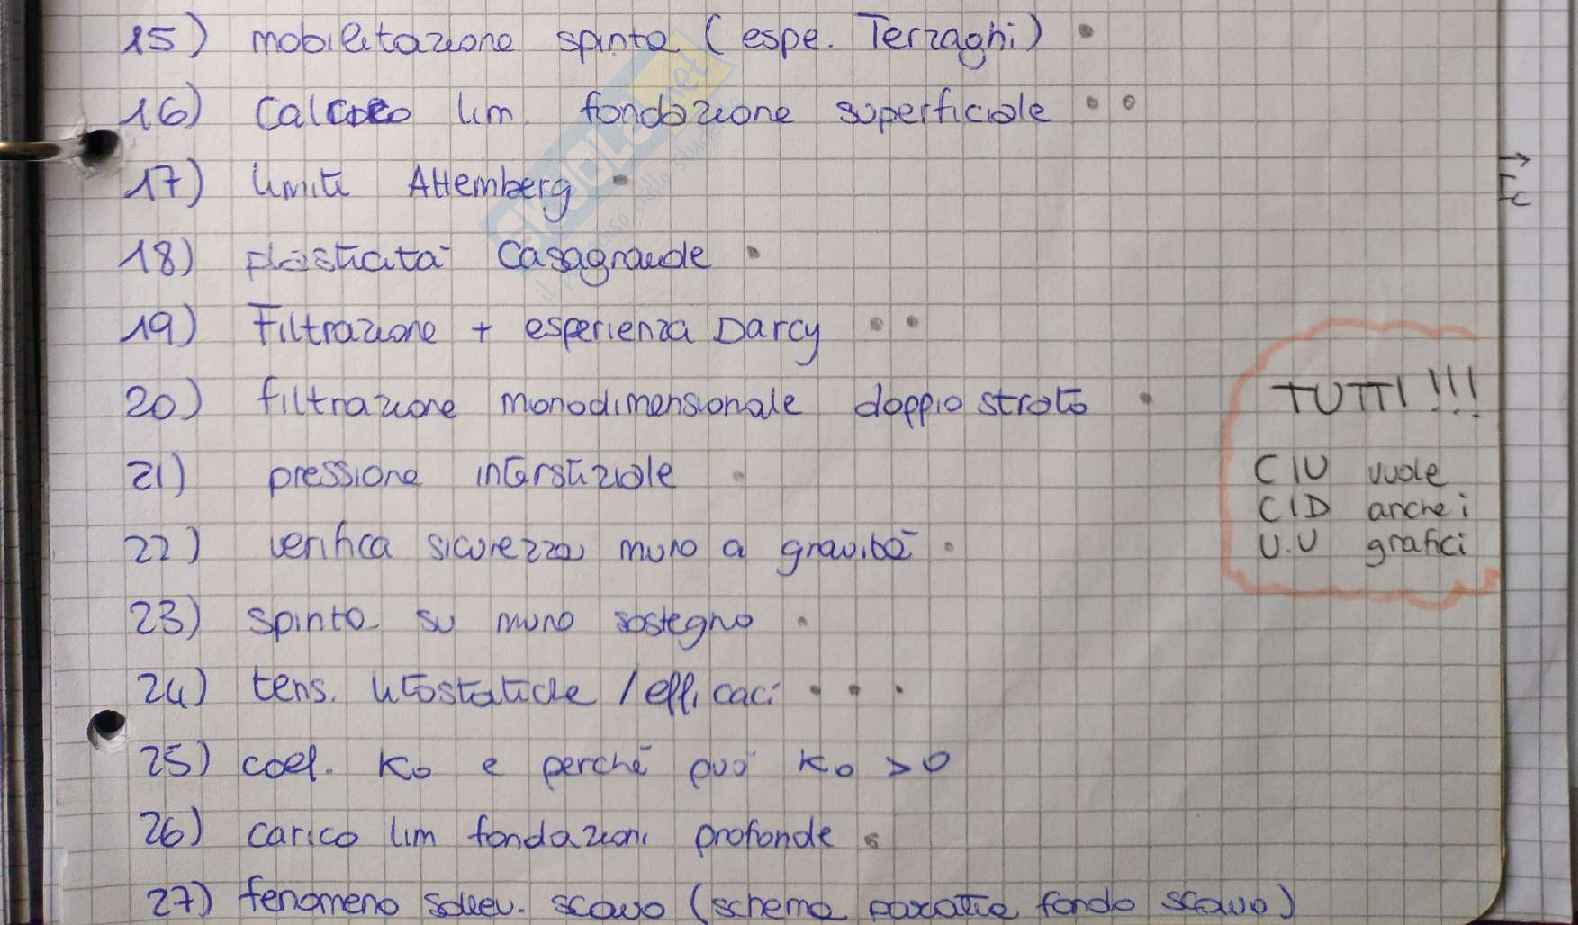 15) mobilitazione spinta (espe. Terzaghi)
16) Calcolo lim fondazione superficiale
17) limiti Attemberg
18) plasticità Casagrande
19) Filtrazione + esperienza Darcy
20) filtrazione monodimensionale doppio strato
21) pressione interstiziale
22) verifica sicurezza muro a gravità
23) spinta su muro sostegno
24) tens. litostatiche / efficaci
25) coef. K₀ e perché può K₀ > 0
26) carico lim fondazioni profonde
27) fenomeno sollev. scavo (schema paratia fondo scavo)
TUTTI!!!
CIU vuole
CID anche i
U.U grafici